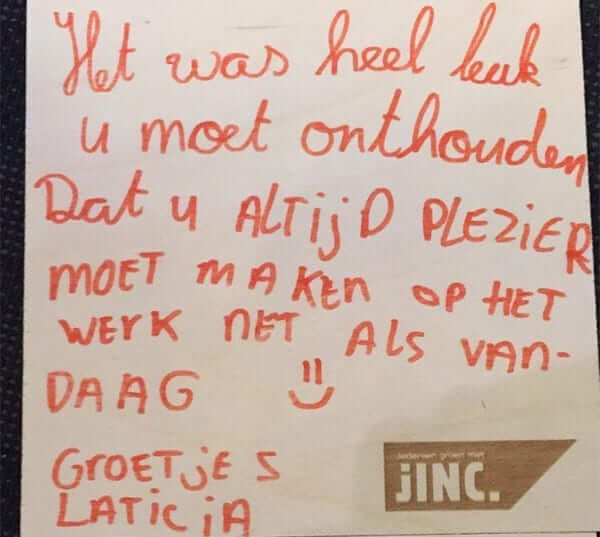 Het was heel leuk
u moet onthouden
Dat u ALTIJD PLEZIER
MOET MAKEN OP HET
WERK NET ALS VAN-
DAAG
GROETJES
LATICIA
Iedereen groeit met
JINC.